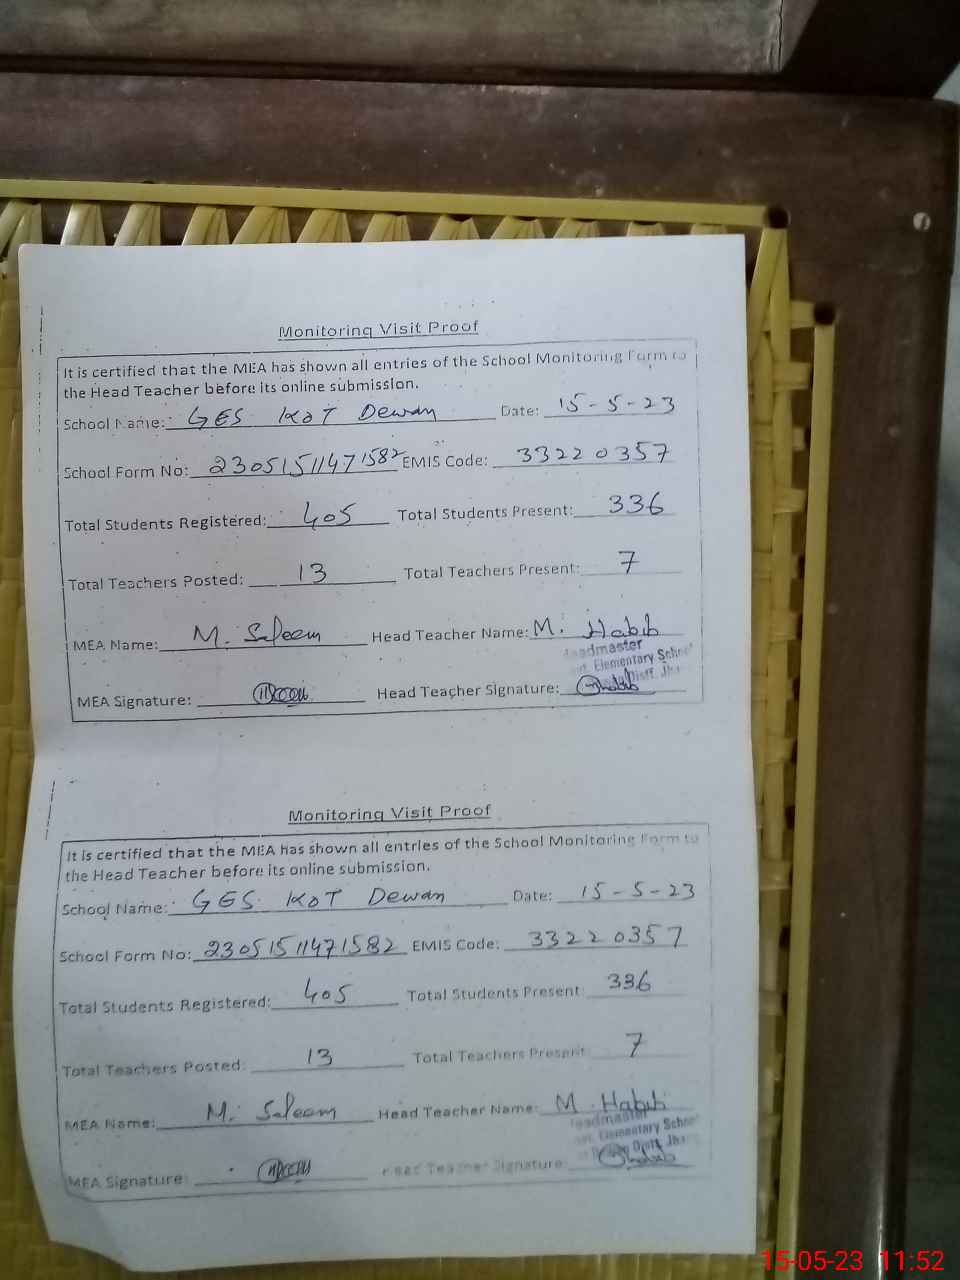 Monitoring Visit Proof
It is certified that the MEA has shown all entries of the School Monitoring Form to
the Head Teacher before its online submission.
School Name: GES KOT Dewan Date: 15-5-23
School Form No: 23051511471582 EMIS Code: 33220357
Total Students Registered: 405 Total Students Present: 336
Total Teachers Posted: 13 Total Teachers Present: 7
MEA Name: M. Saleem Head Teacher Name: M. Habib
Headmaster
Elementary School
Distt. Jh
MEA Signature: Head Teacher Signature: Habib
Monitoring Visit Proof
It is certified that the MEA has shown all entries of the School Monitoring Form to
the Head Teacher before its online submission.
School Name: GES KOT Dewan Date: 15-5-23
School Form No: 23051511471582 EMIS Code: 33220357
Total Students Registered: 405 Total Students Present: 336
Total Teachers Posted: 13 Total Teachers Present: 7
MEA Name: M. Saleem Head Teacher Name: M. Habib
Headmaster
Elementary School
Distt. Jh
MEA Signature: Head Teacher Signature: Habib
15-05-23 11:52